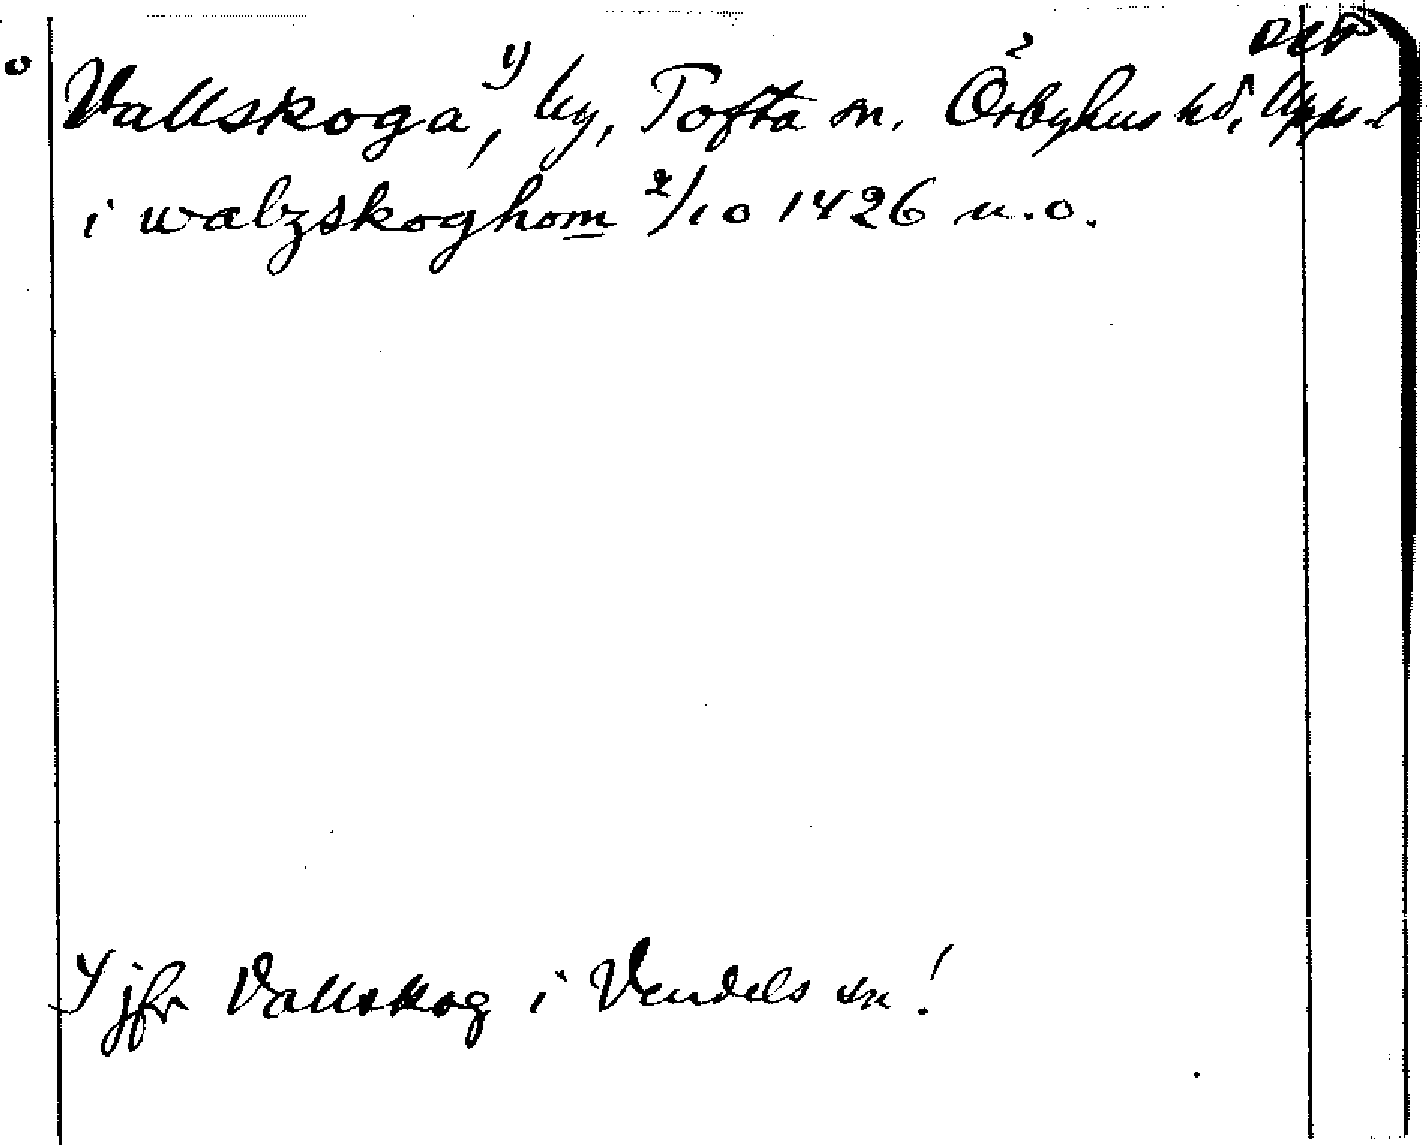 Vallskoga, 1) by, Tofta sn. Örbyhus hd, Upps. l
i walzskoghom 2/10 1426 u.o.
1) jfr Vallskog i Vendels sn!